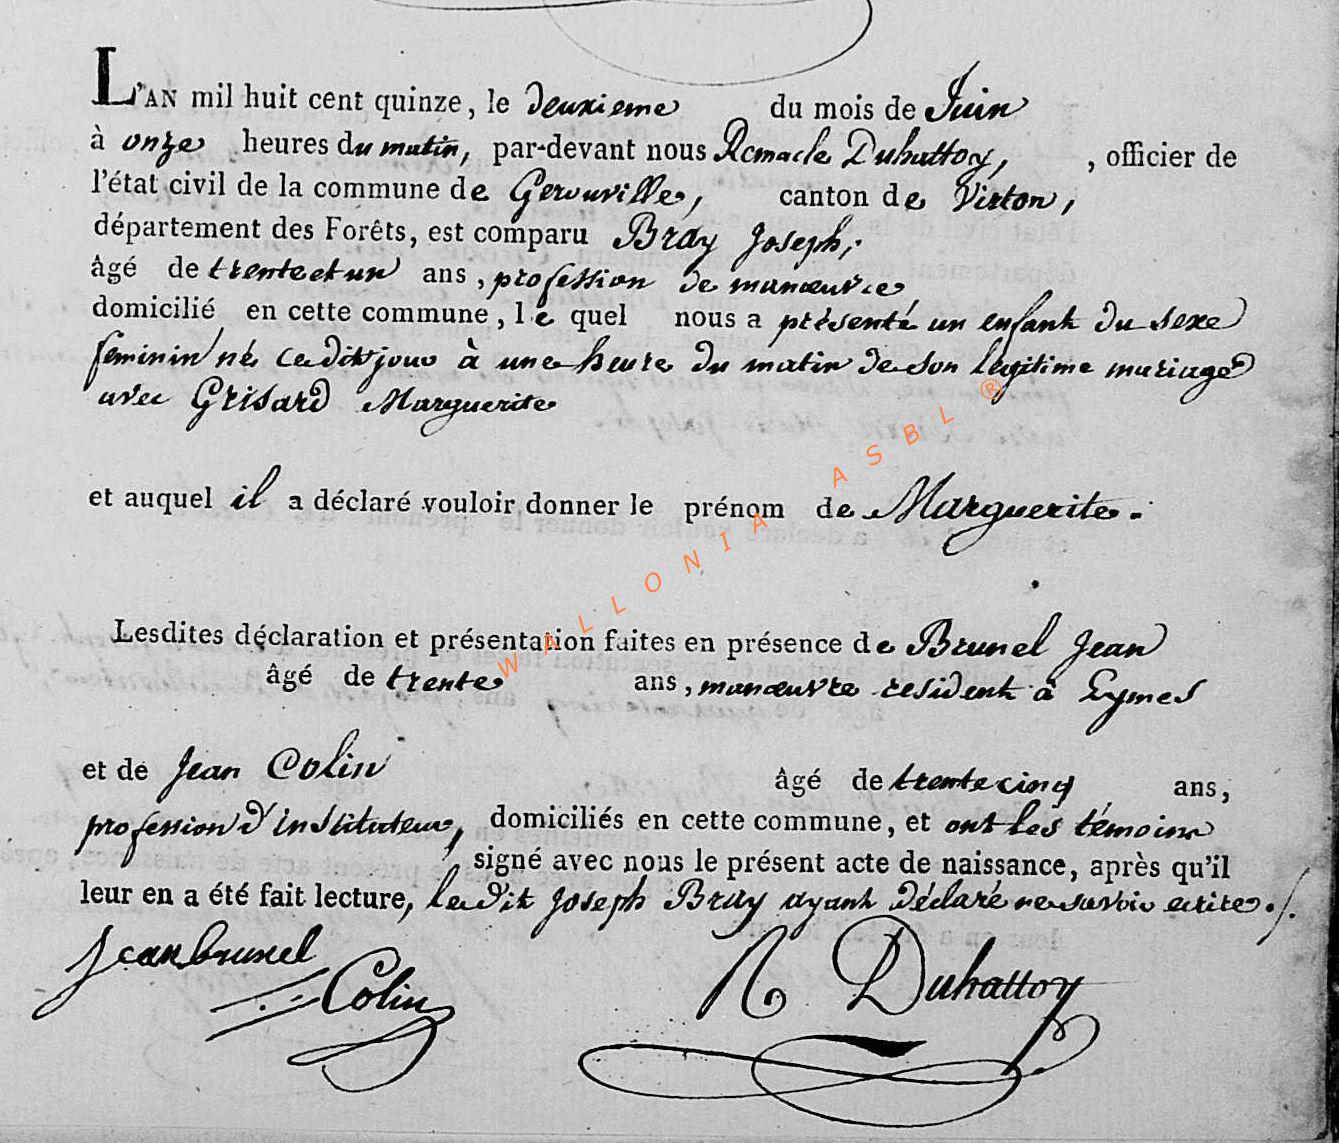 L'AN mil huit cent quinze, le deuxieme du mois de Juin
à onze heures du matin, par-devant nous Remacle Duhattoy, , officier de
l'état civil de la commune de Gerouville, canton de Virton,
département des Forêts, est comparu Bray Joseph,
âgé de trente et un ans, profession de manœuvre
domicilié en cette commune, le quel nous a présenté un enfant du sexe
feminin né ce dit jour à une heure du matin de son légitime mariage
avec Grisard Marguerite
et auquel il a déclaré vouloir donner le prénom de Marguerite.
Lesdites déclaration et présentation faites en présence de Brunel Jean
âgé de trente ans, manœuvre resident à
et de Jean Colin âgé de trente cinq ans,
profession d'instituteur, domiciliés en cette commune, et ont les témoins
signé avec nous le présent acte de naissance, après qu'il
leur en a été fait lecture, le dit Joseph Bray ayant déclaré ne savoir ecrire./.
Jean brunel
Colin
R Duhattoy
WALLONIA ASBL ®